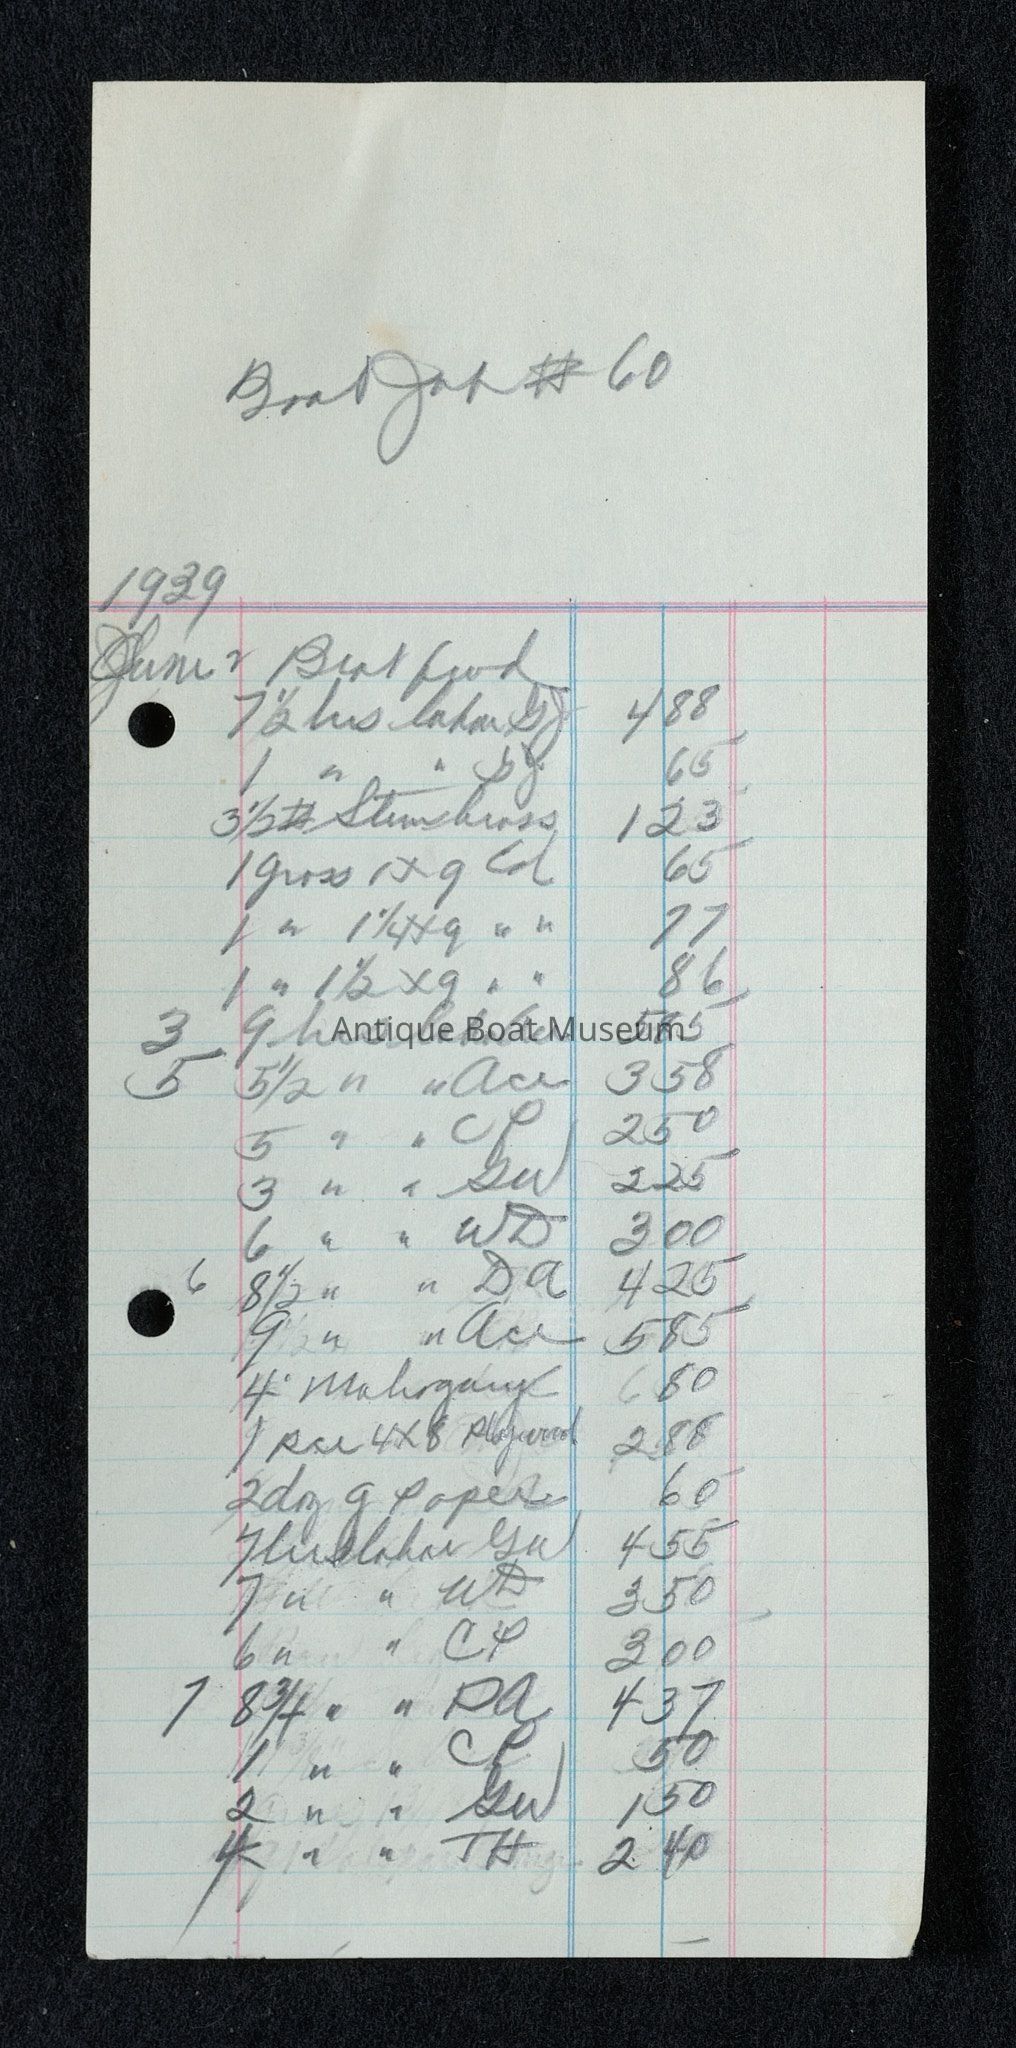 Boat Job # 60
1939
June 2 Boat fwd
7 1/2 hrs labor GJ 4 88
1 " " 65
3 1/2 # Stem brass 1 23
1 gross 1 x 9 65
1 " 1 1/4 x 9 " " 77
1 " 1 1/2 x 9 " " 86
3 9 hrs labor 5 85
Antique Boat Museum
5 5 1/2 " " Ace 3 58
5 " " CP 2 50
3 " " GW 2 25
6 " " WD 3 00
6 8 1/2 " " DA 4 25
9 " " Ace 5 85
4' Mahogany 80
1 pce 4x8 Plywood 2 88
2 doz g paper 60
7 hrs labor GW 4 55
7 " " WD 3 50
6 " " CP 3 00
7 8 3/4 " " DA 4 37
1 " " CP 50
2 " " GW 1 50
4 " " TH 2 40